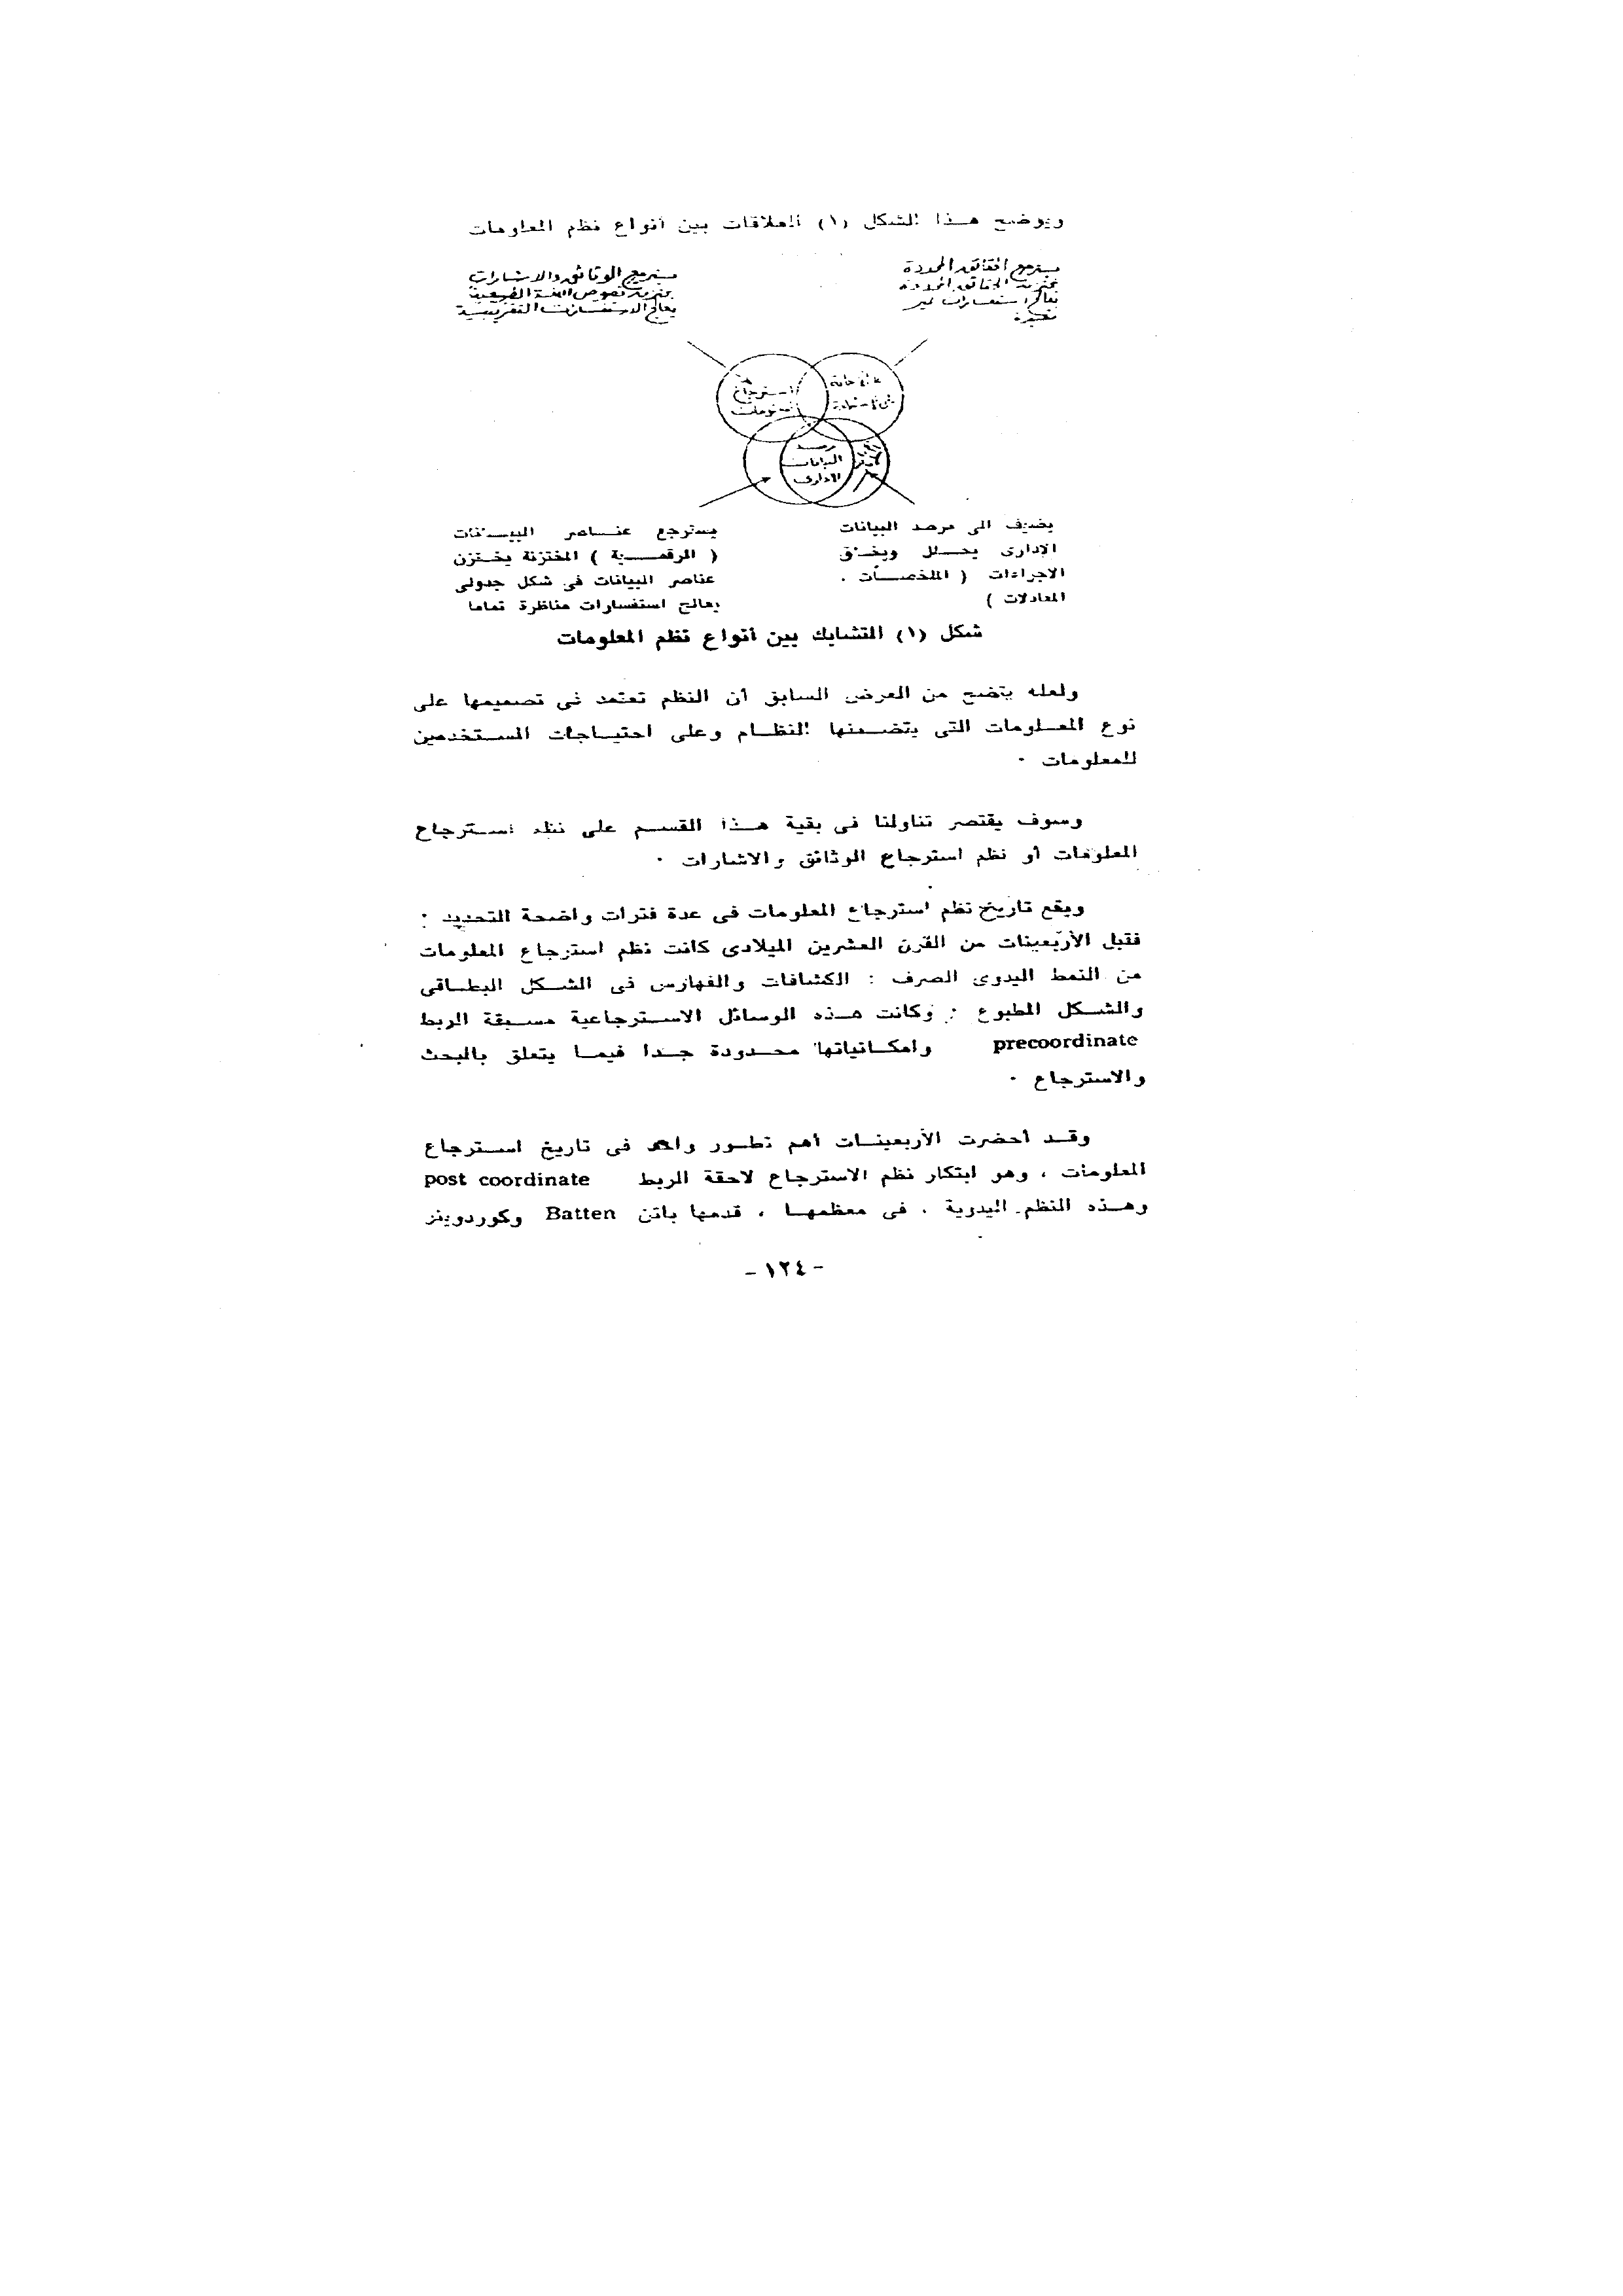 ويوضح هـذا الشكل (١) العلاقات بين أنواع نظم المعلومات
يسترجع الحقائق المحددة
يختزن الحقائق المحددة
يعالج استفسارات غير
يسترجع الوثائق والاشارات
يختزن نصوص اللغة الطبيعية
يعالج الاستفسارات التقريبية
استرجاع
المعلومات
مرصد
البيانات
الادارى
يضيف الى مرصد البيانات
الادارى يحـلل ويخـلق
الاجراءات ( الملخصـات .
المعادلات )
يسترجع عنـاصر البيـانات
( الرقمـــية ) المختزنة يخـتزن
عناصر البيانات فى شكل جدولى
يعالج استفسارات مناظرة تماما
شكل (١) التشابك بين أنواع نظم المعلومات
ولعله يتضح من العرض السابق أن النظم تعتمد فى تصميمها على
نوع المعـلومات التى يتضـمنها النظـام وعلى احتيـاجات المسـتخدمين
للمعلومات ٠
وسوف يقتصر تناولنا فى بقية هـذا القسـم على نظم اسـترجاع
المعلومات أو نظم استرجاع الوثائق والاشارات ٠
ويقع تاريخ نظم استرجاع المعلومات فى عدة فترات واضحة التحديد :
فقبل الأربعينات من القرن العشرين الميلادى كانت نظم استرجاع المعلومات
من النمط اليدوى الصرف : الكشافات والفهارس فى الشـكل البطـاقى
والشـكل المطبوع : وكانت هـذه الوسائل الاسـترجاعية مسـبقة الربط
precoordinate وامكـانياتها محـدودة جـدا فيمـا يتعلق بالبحث
والاسترجاع ٠
وقـد أحضرت الأربعينـات أهم تطـور واحد فى تاريخ اسـترجاع
المعلومات ، وهو ابتكار نظم الاسترجاع لاحقة الربط post coordinate
وهـذه النظم اليدوية ، فى معظمهـا ، قدمها باتن Batten وكوردوينز
- ١٢٤ -